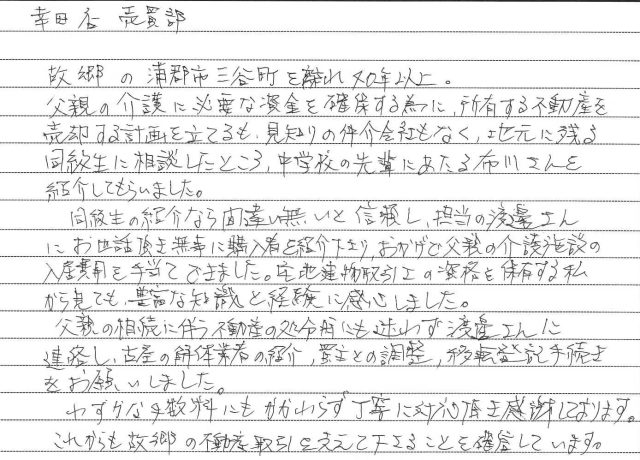 幸田店 売買部
故郷の蒲郡市三谷町を離れ40年以上。
父親の介護に必要な資金を確保する為に、所有する不動産を
売却する計画を立てるも、見知りの仲介会社もなく、地元に残る
同級生に相談したところ、中学校の先輩にあたる布川さんを
紹介してもらいました。
同級生の紹介なら間違い無いと信頼し、担当の渡邉さん
にお世話頂き無事に購入者を紹介下さり、おかげで父親の介護施設の
入居費用を手当てできました。宅地建物取引士の資格を保有する私
から見ても、豊富な知識と経験に感心しました。
父親の相続に伴う不動産の処分時にも迷わず渡邉さんに
連絡し、古屋の解体業者の紹介、買主との調整、移転登記手続き
をお願いしました。
わずかな手数料にもかかわらず丁寧に対応頂き感謝しております。
これからも故郷の不動産取引を支えて下さることを確信しています。